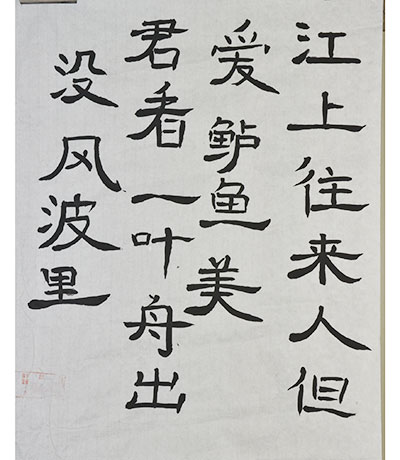 江上往来人但
爱鲈鱼美
君看一叶舟出
没风波里